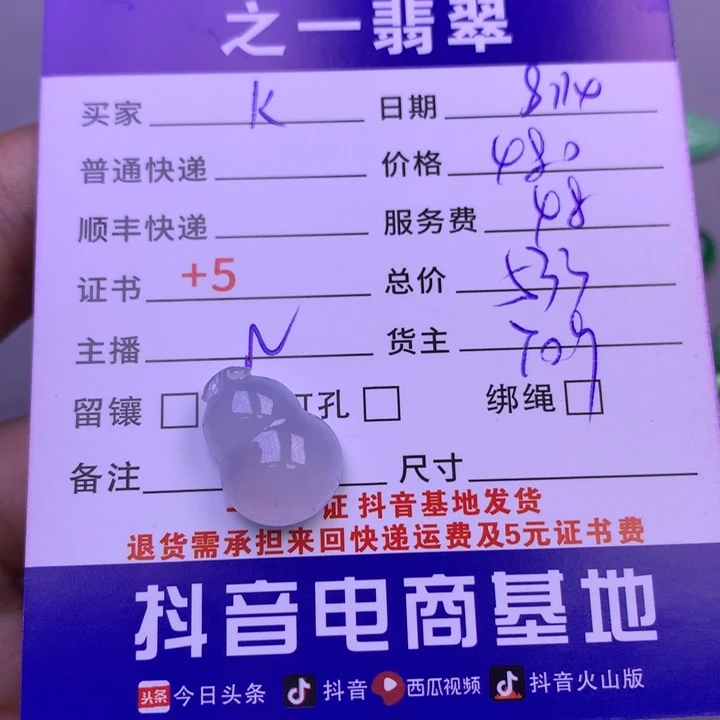 之一翡翠
买家 K 日期 8114
普通快递 价格 480
顺丰快递 服务费 48
证书 +5 总价 533
主播 N 货主 T09
留镶 孔 绑绳
备注 尺寸
证 抖音基地发货
退货需承担来回快递运费及5元证书费
抖音电商基地
头条 今日头条 抖音 西瓜视频 抖音火山版